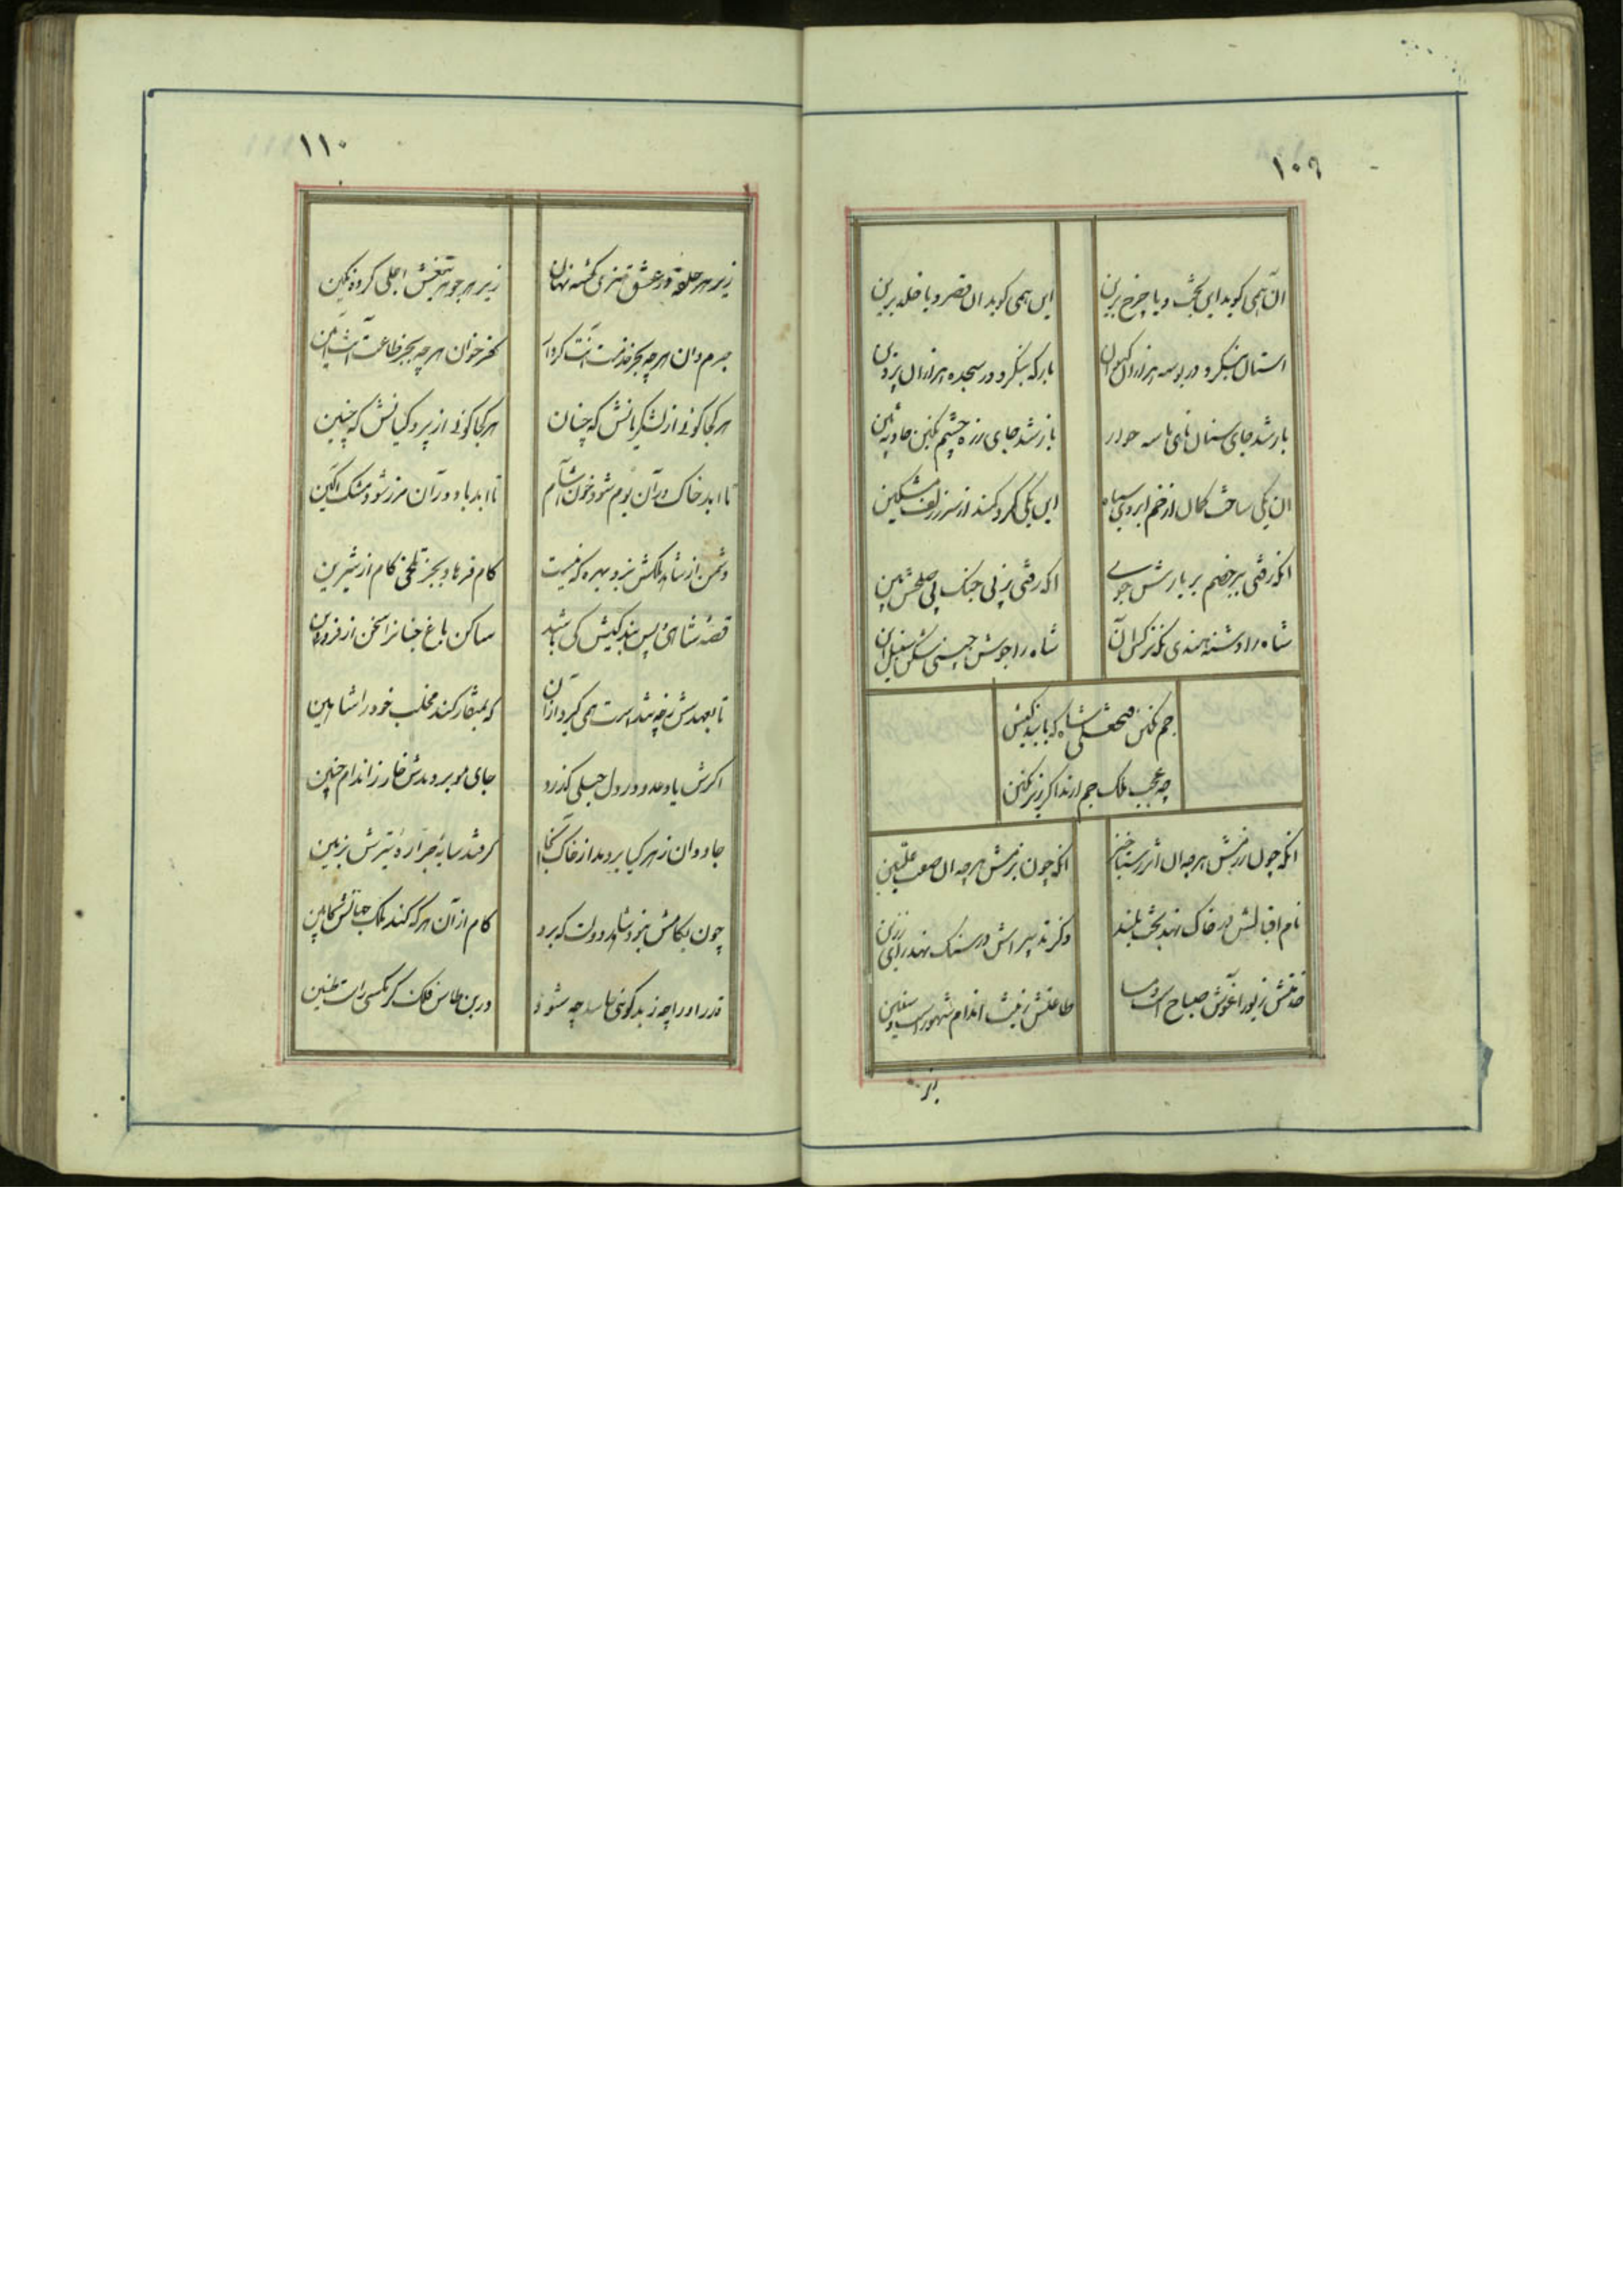 ۱۰۹
آن همی گوید این تخت و یا چرخ برین
این همی گوید آن قصر و یا خلد برین
آستان بنگر و در بوسه هزاران کیوان
بارکه بنگر و در سجده هزاران پروین
باز شد جای سنان
باز شد جای زره چشم
آن یکی ساخت کمان از خم ابروی سیاه
این یکی کرد کمند از سر زلف مشکین
آنکه رفتی بر خصم بر یارش جوی
آنکه رفتی ز پی جنک پی صلحش بین
شاه را دشنه هندی نکه نرکس آن
شاه را جوشن چینی شکن سنبل این
جم نکین فتحعلی شاه که با بندکیش
چه عجب ملک جم ارند اکر زیر نکین
آنکه چون رزمش هر چه آن اثر رستاخیز
آنکه چون بزمش هر چه آن صف علیین
نام اقبالش در خاک نهد تخت بلند
ذکر تدبیرش در سنک نهد رای رزین
خدمتش زیور آغوش صباح است و مسا
طاعتش زینت اندام شهور است و سنین
زیر
۱۱۰
زیر هر حلقه درعش قدری کشته نهان
زیر هر جوهر تیغش اجلی کرده کمین
جرم دان هر چه بجز خدمت آنت کردار
کفر خوان هر چه بجز طاعت آنت آیین
هر کجا کوئی از لشکریانش که چنان
هر کجا کوئی از پردکیانش که چنین
تا ابد خاک در آن بوم شود خون آشام
تا ابد باد در آن مرز شود مشک آکین
دشمن از شاهد ملکش نبرد بهره که نیست
کام فرهاد بجز تلخی کام از شیرین
قصه شاهی پس بندکیش کی باشد
ساکن باغ جنانرا سخن از فروردین
تا بعهدش نه چه شد است همی گیرد از آن
که بمنقار کند مخلب خود را شاهین
اکرش یاد عدو در دل حبلی کذرد
جای مو بر دمدش خار ز اندام جنین
جاودان زهر کیا بر دمد از خاک آنجا
کر فتد سایه جراره تیرش بزمین
چون بکامش نبود شاهد دولت که برد
کام از آن هر که کند ملک جهانش کابین
قدر او را چه ز بدکوئی حاسد چه شود
درین طاس فلک کر مکسی راست طنین